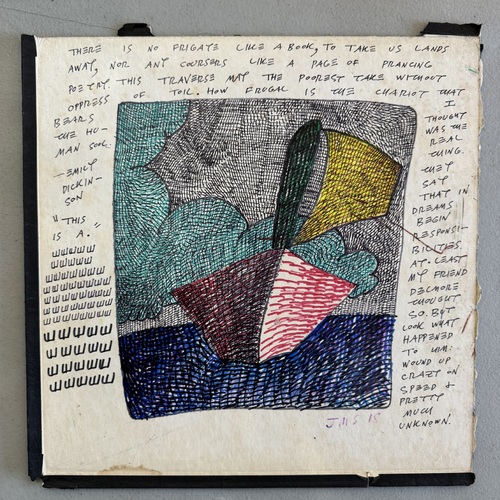 THERE IS NO FRIGATE LIKE A BOOK, TO TAKE US LANDS
AWAY, NOR ANY COURSERS LIKE A PAGE OF PRANCING
POETRY. THIS TRAVERSE MAY THE POOREST TAKE WITHOUT
OPPRESS OF TOIL. HOW FRUGAL IS THE CHARIOT THAT
BEARS
THE HU-
MAN SOUL.
—EMILY
DICKIN-
SON
"THIS
IS A."
I
THOUGHT
WAS THE
REAL
THING.
THEY
SAY
THAT IN
DREAMS
BEGIN
RESPONSI-
BILITIES.
AT LEAST
MY FRIEND
DELMORE
THOUGHT
SO. BUT
LOOK WHAT
HAPPENED
TO HIM:
WOUND UP
CRAZY ON
SPEED +
PRETTY
MUCH
UNKNOWN.
JMS 15